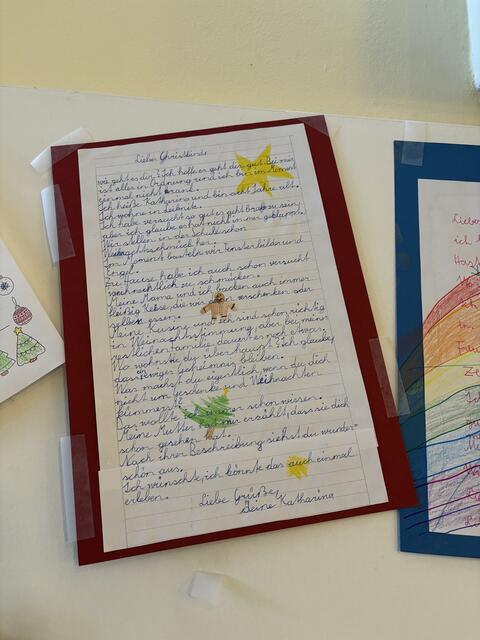 Liebes Christkind
wie geht es dir? Ich hoffe er geht dir gut. Bei mir
ist alles in Ordnung und ich bin im Moment
einmal nicht krank.
Ich heiße Katharina und bin acht Jahre alt.
Ich wohne in
Ich habe versucht so gut es geht brav zu sein
aber ich glaube es hat nicht immer geklappt.
Wir stellen in der Schule schon
her.
Im Moment basteln wir Fensterbilder und
Engel.
Zu Hause habe ich auch schon versucht
weihnachtlich zu schmücken.
Meine Mama und ich backen auch immer
fleißig Kekse, die wir dann verschenken oder
selber essen.
Meine Kusine und ich sind schon richtig
in Weihnachtsstimmung, aber bei meiner
restlichen Familie dauert es noch etwas.
Wo wohnst du überhaupt? Ich glaube,
das ewiges Geheimnis bleiben.
Was machst du eigentlich, wenn du dich
nicht um Geschenke und Weihnachten
kümmerst?
Das wollte ich immer schon wissen.
Meine Mutter hat mir erzählt, dass sie dich
schon gesehen hat.
Nach ihrer Beschreibung siehst du wunder-
schön aus.
Ich wünschte, ich könnte das auch einmal
erleben.
Liebe Grüße,
deine Katharina
Liebe
ich